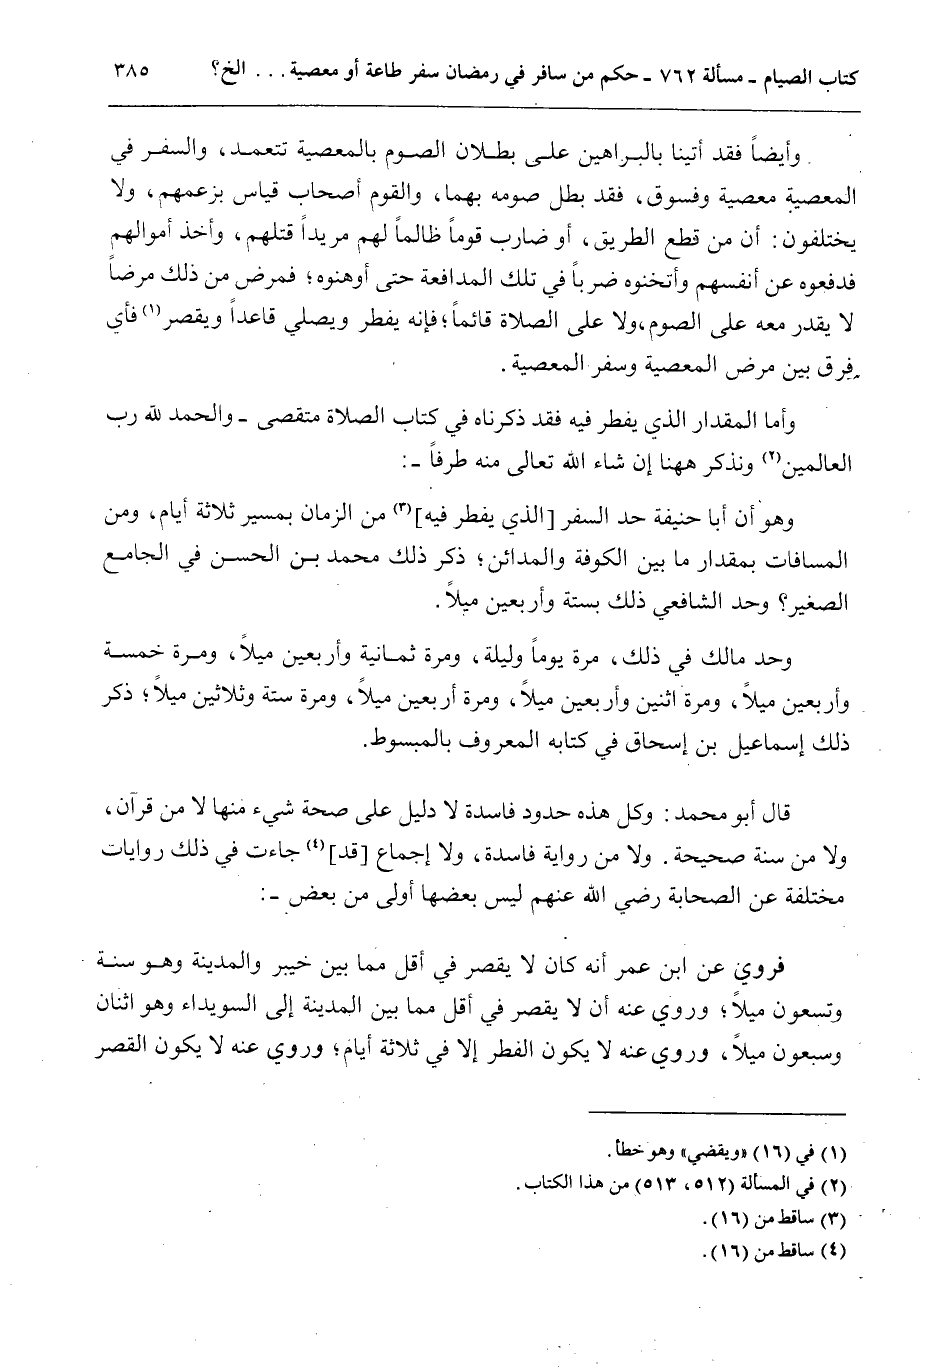 كتاب الصيام ـ مسألة ٧٦٢ ـ حكم من سافر في رمضان سفر طاعة أو معصية ... الخ؟ ٣٨٥
وأيضاً فقد أتينا بالبراهين على بطلان الصوم بالمعصية تتعمد، والسفر في
المعصية معصية وفسوق، فقد بطل صومه بهما، والقوم أصحاب قياس بزعمهم، ولا
يختلفون: أن من قطع الطريق، أو ضارب قوماً ظالماً لهم مريداً قتلهم، وأخذ أموالهم
فدفعوه عن أنفسهم وأثخنوه ضرباً في تلك المدافعة حتى أوهنوه؛ فمرض من ذلك مرضاً
لا يقدر معه على الصوم،ولا على الصلاة قائماً؛فإنه يفطر ويصلي قاعداً ويقصر(١)فأي
فرق بين مرض المعصية وسفر المعصية.
وأما المقدار الذي يفطر فيه فقد ذكرناه في كتاب الصلاة متقصى ـ والحمد لله رب
العالمين(٢) ونذكر ههنا إن شاء الله تعالى منه طرفاً ـ:
وهو أن أبا حنيفة حد السفر [الذي يفطر فيه](٣) من الزمان بمسير ثلاثة أيام، ومن
المسافات بمقدار ما بين الكوفة والمدائن؛ ذكر ذلك محمد بن الحسن في الجامع
الصغير؟ وحد الشافعي ذلك بستة وأربعين ميلاً.
وحد مالك في ذلك، مرة يوماً وليلة، ومرة ثمانية وأربعين ميلاً، ومرة خمسة
وأربعين ميلاً، ومرة اثنين وأربعين ميلاً، ومرة أربعين ميلاً، ومرة ستة وثلاثين ميلاً؛ ذكر
ذلك إسماعيل بن إسحاق في كتابه المعروف بالمبسوط.
قال أبو محمد: وكل هذه حدود فاسدة لا دليل على صحة شيء منها لا من قرآن،
ولا من سنة صحيحة. ولا من رواية فاسدة، ولا إجماع [قد](٤) جاءت في ذلك روايات
مختلفة عن الصحابة رضي الله عنهم ليس بعضها أولى من بعض ـ:
فروي عن ابن عمر أنه كان لا يقصر في أقل مما بين خيبر والمدينة وهو ستة
وتسعون ميلاً؛ وروي عنه أن لا يقصر في أقل مما بين المدينة إلى السويداء وهو اثنان
وسبعون ميلاً، وروي عنه لا يكون الفطر إلا في ثلاثة أيام؛ وروي عنه لا يكون القصر
(١) في (١٦) «ويقضي» وهو خطأ.
(٢) في المسألة (٥١٢، ٥١٣) من هذا الكتاب.
(٣) ساقط من (١٦).
(٤) ساقط من (١٦).